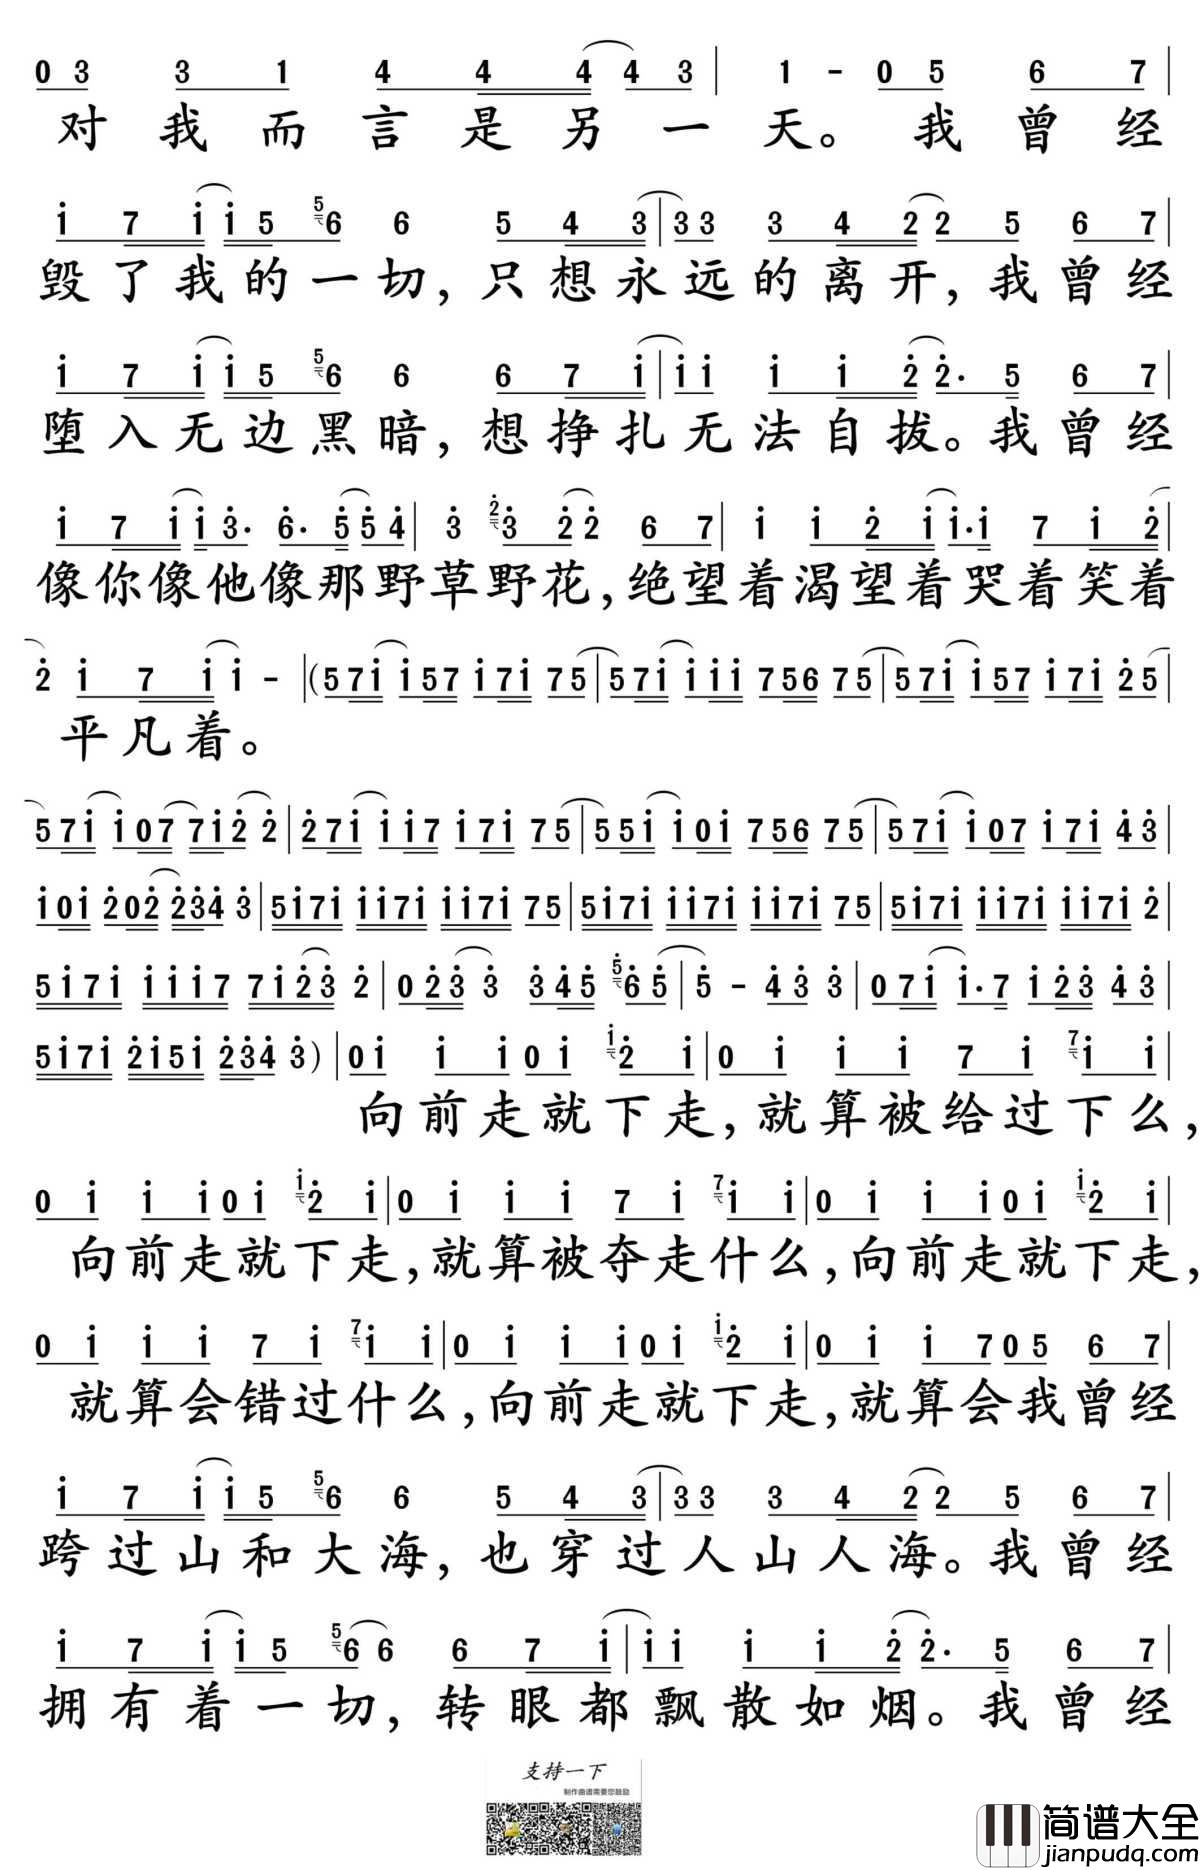 0 3 3 1 4 4 4 4 3 | 1 - 0 5 6 7 |
对我而言是另一天。我曾经
i 7 i i 5 5 6 6 5 4 3 | 3 3 3 4 2 2 5 6 7 |
毁了我的一切,只想永远的离开,我曾经
i 7 i i 5 5 6 6 6 7 i | i i i i 2 2· 5 6 7 |
堕入无边黑暗,想挣扎无法自拔。我曾经
i 7 i i 3· 6· 5 5 4 | 3 2 3 2 2 6 7 | i i 2 i i· i 7 i 2 |
像你像他像那野草野花,绝望着渴望着哭着笑着
2 i 7 i i - | (5 7 i i 5 7 i 7 i 7 5 | 5 7 i i i i 7 5 6 7 5 | 5 7 i i 5 7 i 7 i 2 5 |
平凡着。
5 7 i i 0 7 7 i 2 2 | 2 7 i i i 7 i 7 i 7 5 | 5 5 i i 0 i 7 5 6 7 5 | 5 7 i i 0 7 i 7 i 4 3 |
i 0 i 2 0 2 2 3 4 3 | 5 i 7 i i i 7 i i i 7 i 7 5 | 5 i 7 i i i 7 i i i 7 i 7 5 | 5 i 7 i i i 7 i i i 7 i 2 |
5 i 7 i i i i 7 7 i 2 3 2 | 0 2 3 3 3 4 5 5 6 5 | 5 - 4 3 3 | 0 7 i i· 7 i 2 3 4 3 |
5 i 7 i 2 i 5 i 2 3 4 3) | 0 i i i 0 i i 2 i | 0 i i i 7 i 7 i i |
向前走就下走,就算被给过下么,
0 i i i 0 i i 2 i | 0 i i i 7 i 7 i i | 0 i i i 0 i i 2 i |
向前走就下走,就算被夺走什么,向前走就下走,
0 i i i 7 i 7 i i | 0 i i i 0 i i 2 i | 0 i i 7 0 5 6 7 |
就算会错过什么,向前走就下走,就算会我曾经
i 7 i i 5 5 6 6 5 4 3 | 3 3 3 4 2 2 5 6 7 |
跨过山和大海,也穿过人山人海。我曾经
i 7 i i 5 5 6 6 6 7 i | i i i i 2 2· 5 6 7 |
拥有着一切,转眼都飘散如烟。我曾经
支持一下
制作曲谱需要您鼓励
简谱大全
jianpudq.com